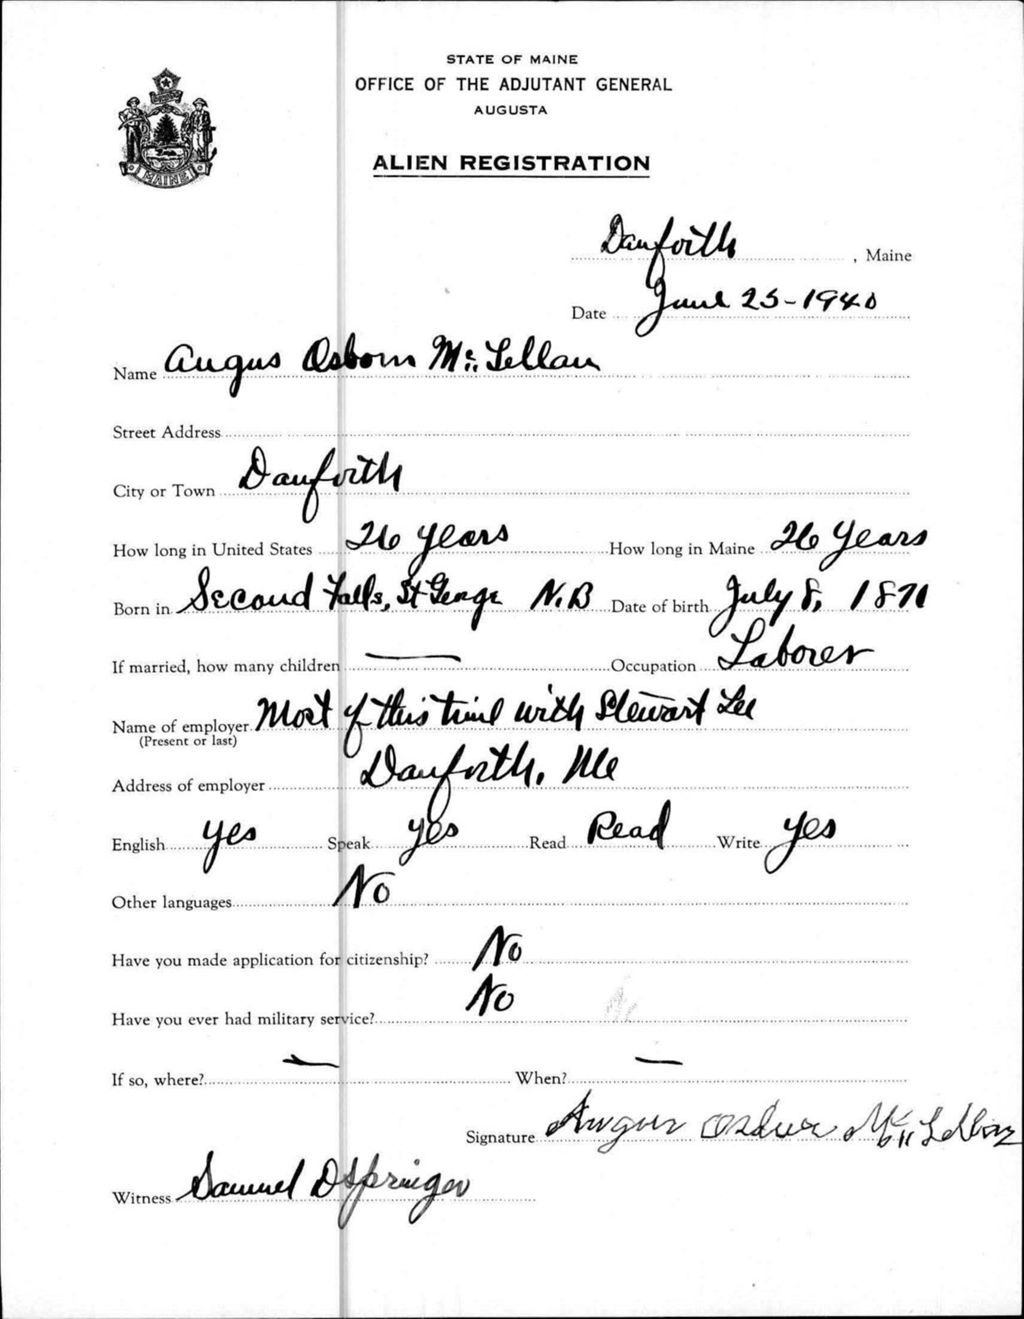 STATE OF MAINE
OFFICE OF THE ADJUTANT GENERAL
AUGUSTA
MAINE
ALIEN REGISTRATION
Danforth, Maine
Date June 25-1940
Name Angus Osborn Mc Lellan
Street Address
City or Town Danforth
How long in United States 26 years How long in Maine 26 Years
Born in Second Falls, St George N.B Date of birth July 8, 1871
If married, how many children — Occupation Laborer
Name of employer Most of this time with Stewart Lee
(Present or last)
Address of employer Danforth, Me
English yes Speak yes Read Read Write yes
Other languages No
Have you made application for citizenship? No
Have you ever had military service? No
If so, where? — When? —
Signature Angus Mc Lellan
Witness Samuel D Springer